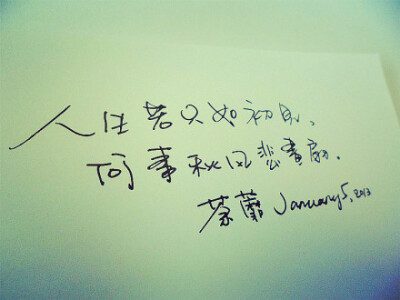 人生若只如初见、
何事秋风悲畫扇.
荼蘼 January 5, 2013